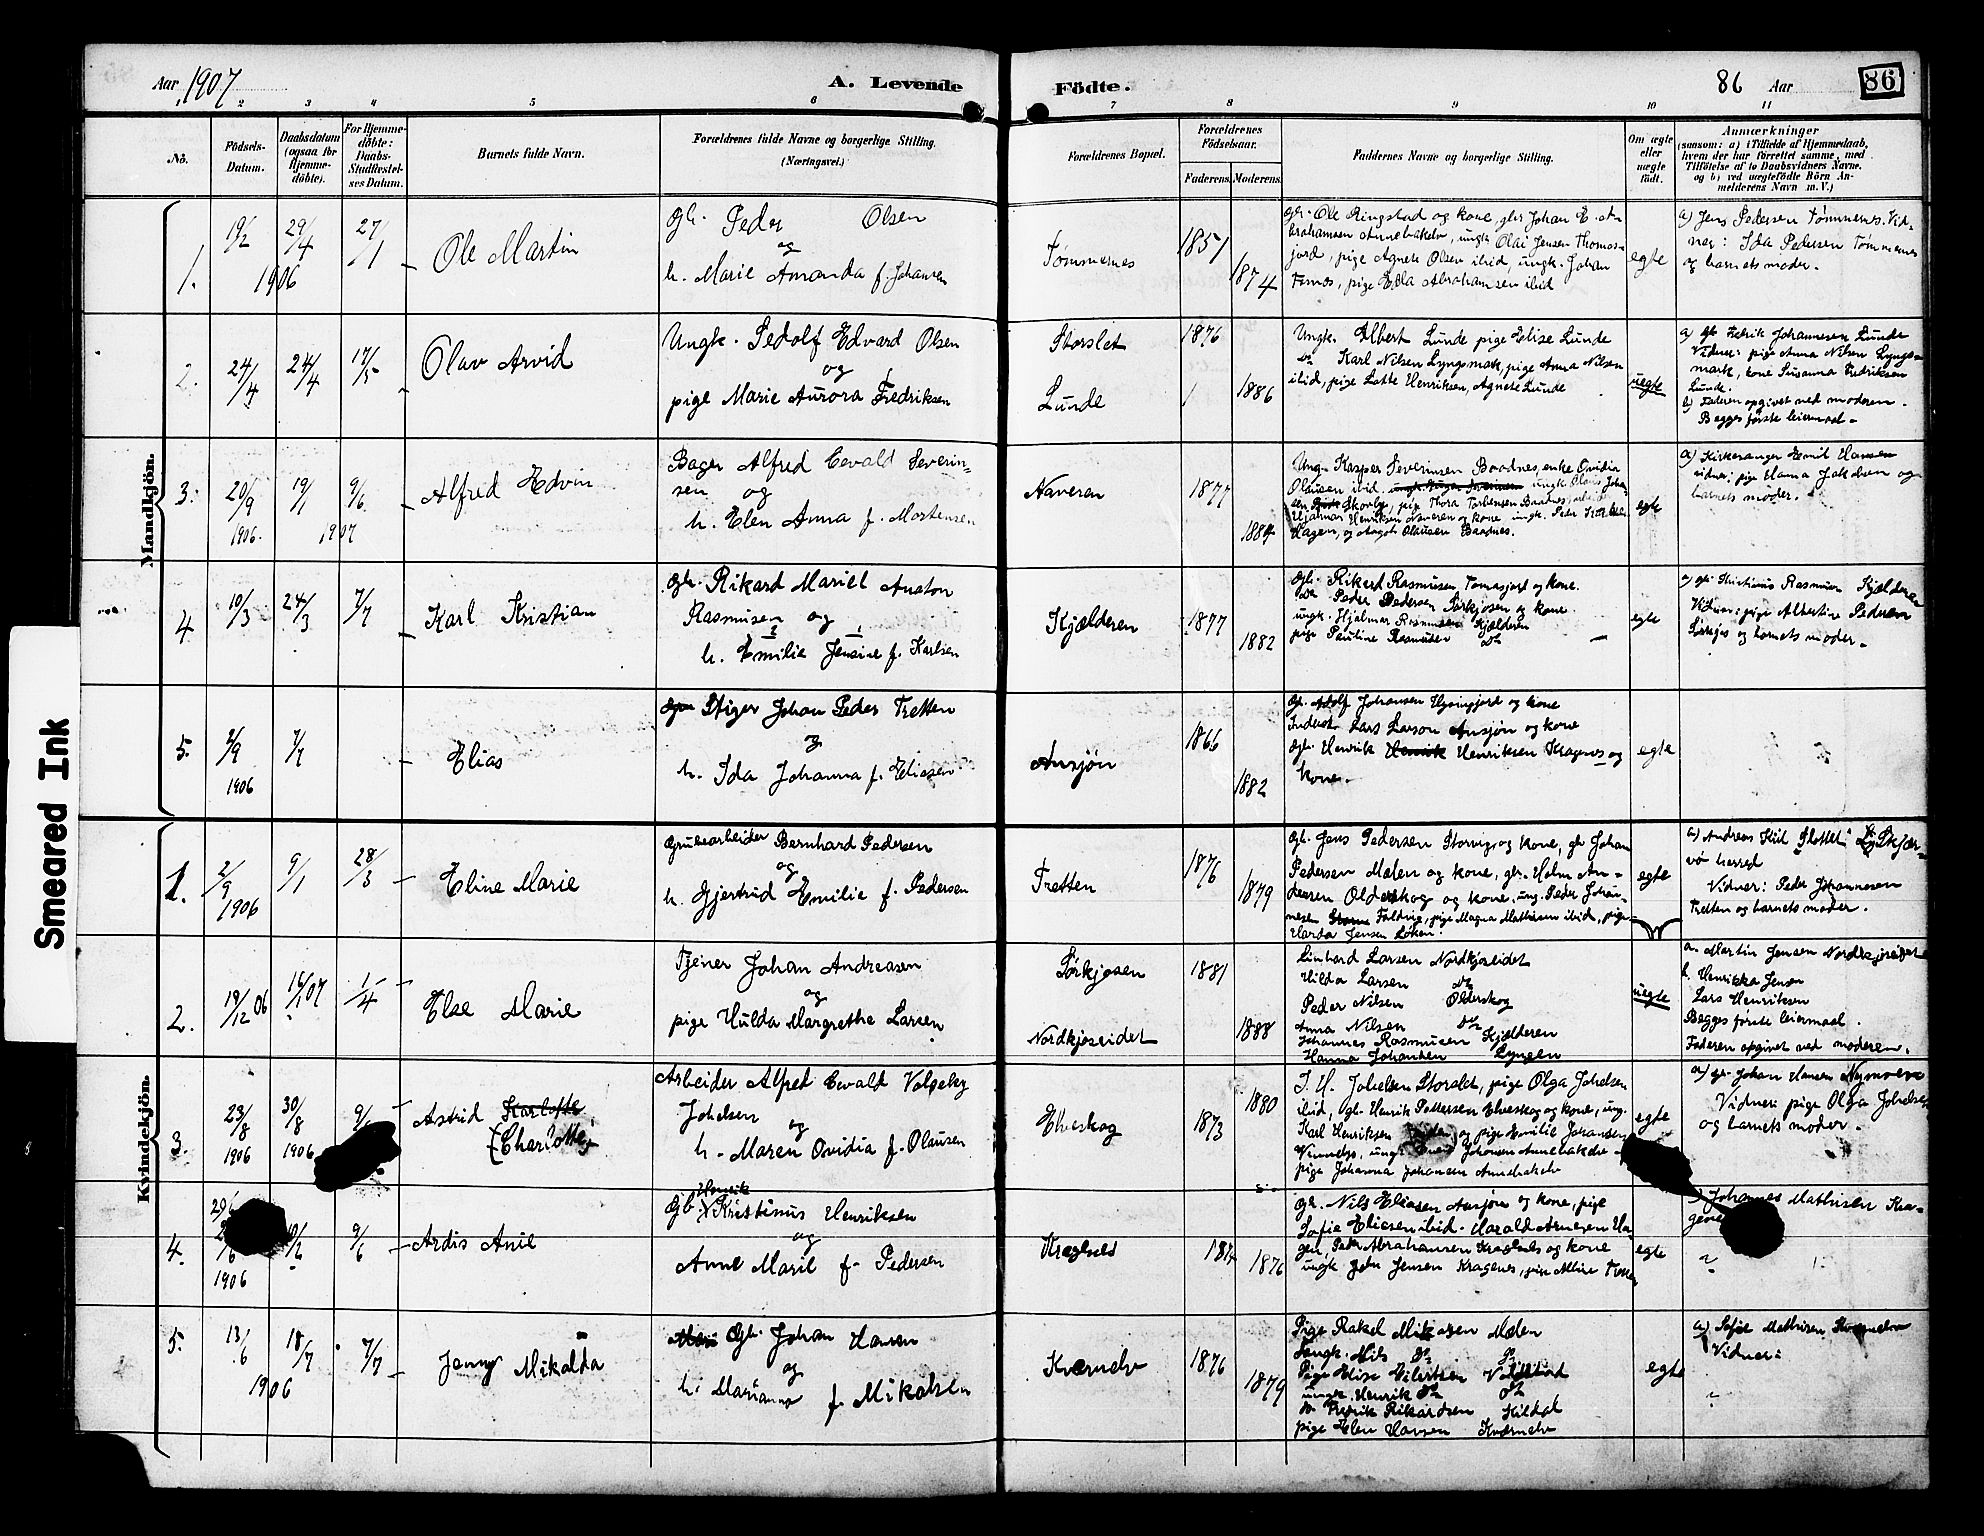 Aar 1907
A. Levende
Födte.
86 Aar
86
1
2
3
4
5
6
7
8
9
10
11
No.
Födsels-
Datum.
Daabsdatum
(ogsaa for
Hjemme-
döbte).
For Hjemme-
döbte:
Daabs-
Stadfæstel-
ses Datum.
Barnets fulde Navn.
Forældrenes fulde Navne og borgerlige Stilling.
(Næringsvei.)
Forældrenes Bopæl.
Forældrenes
Födselsaar.
Faderens.
Moderens.
Faddernes Navne og borgerlige Stilling.
Om ægte
eller
uægte
födt.
Anmærkninger
(saasom: a) i Tilfælde af Hjemmedaab,
hvem der har forrettet samme, med
Tilföielse af to Daabsvidners Navne.
og b) ved uægtefödte Börn An-
melderens Navn m. V.)
Smeared Ink
Mandkjön.
1.
19/2
29/4
1906
27/1
Ole Martin
Gb. Peder Olsen
og
h. Marie Amanda f. Johansen
Tømmernes
1851
1874
gb. Ole Ringstad og kone, gbr Johan E. A-
brahamsen Annebakelv, ungk Olai Jensen Thomas-
jord, pige Agnete Olsen ibid, ungk. Johan
pige Edla Abrahamsen ibid
egte
a) Jens Pedersen Tømmernes. Vid-
ner: Ida Pedersen Tømmernes
og barnets moder.
2.
24/4
24/4
17/5
Olav Arvid
Ungk. Pedolf Edvard Olsen
og
pige Marie Aurora Fredriksen
Storslet
Lunde
1876
1886
Ungk. Albert Lunde pige Elise Lunde
do Karl Nilsen Lyngsmark, pige Anna Nilsen
ibid, pige Lotte Henriksen, Agnete Lunde
uegte
a) gb Fedrik Johannesen Lunde
Vidner: pige Anna Nilsen Lyngs-
mark, kone Susanna Fredriksen
Lunde.
b) Faderen opgivet ved moderen.
Begges første leiermaal.
3.
20/9
1906.
19/1
1907
9/6.
Alfred Edvin
Bager Alfred Evald Severin-
sen og
h. Elen Anna f. Mortensen
Naveren
1877
1884
Ung. Kasper Severinsen Baadnes, enke Ovidia
Olausen ibid ungk Olaus Joha-
sen Skonby, pige Thora Torbensen Baadnes
Hjalmar Henriksen Naveren og kone ungk. Peder
Hagen, og Aagot Olausen Baadnes.
egte
a) Kirkesanger Bernt Hansen
vidner: pige Hanna Jakobsen og
barnets moder.
4.
10/3
24/3
7/7
Karl Kristian
Gb. Rikard Mariel Anston
Rasmusen og
h. Emilie Jensine f. Karlsen
Kjælderen
1877
1882
Gb. Rikard Rasmusen Tomasjord og kone.
do Peder Pedersen Sørkjosen og kone.
ungk. Hjalmar Rasmusen Kjælderen
pige Pauline Rasmusen do
egte
a) gb. Kristianus Rasmusen Kjælderen
Vidner: pige Albertine Pedersen
Sørkjos og barnets moder.
5.
2/9
1906
7/1
Elias
Stiger Johan Peder Tretten
og
h. Ida Johanna f. Eliasen
Ansjøn
1866
1882
Gb. Adolf Johansen og kone
Inderst Lars Larson Ansjøn og kone
Gb. Henrik Henriksen Kragnes og
kone.
egte
Kvindekjön.
1.
2/9
1906
9/1
28/3
Eline Marie
Grubearbeider Bernhard Pedersen
og
h. Gjertrud Emilie f. Pedersen
Tretten
1876
1879
Gb. Jens Pedersen Storvig og kone, gb Johan
Pedersen Molen og kone, gb. Holm An-
dersen Olderskog og kone, ung. Peder Johan-
nesen Faldvig, pige Magna Mathisen ibid, pige
Harda Jensen Løken.
egte
a) Andreas Kiil Slottet i Skjær-
vø herred
Vidner: Peder Johannesen
Tretten og barnets moder.
2.
19/12 06
16/1 07
1/4
Else Marie
Tjener Johan Andreasen
og
pige Hulda Margrethe Larsen
Sørkjosen
Nordkjoseidet
1881
1888
Einhard Larsen Nordkjoseidet
Hilda Larsen do
Peder Nilsen Olderskog
Anna Nilsen do
Johannes Rasmusen Kjælderen
Hanna Johansen Lyngen
uegte
a. Martin Jensen Nordkjoseidet
h. Henrikka Jensen
Lars Henriksen
Begges første leiermaal.
Faderen opgivet ved moderen.
3.
23/8
1906
30/8
1906
9/
Astrid Karlotte
(Charlotte)
Arbeider Alfred Ewald Volgeby
Johelsen
og
h. Maren Ovidia f. Olausen
Elveskog
1873
1880
J. H. Johelsen Storslet, pige Olga Johelsen
ibid, gb. Henrik Pettersen Elveskog og kone, ung.
Karl Henriksen og pige Emilie Johansen
ungk Johansen Annebakelv
pige Johanna Johansen Annebakelv
egte
a) gb. Johan Hansen Nymoen
Vidner: pige Olga Johelsen
og barnets moder.
4.
29/6
1906
9/6
Ardis Anie
Henrik
Gb. Kristinus Henriksen
og
Anne Maril f. Pedersen
Kragenes
187
1876
Gb. Nils Eliasen Ansjøn og kone, pige
Sofie Eliasen ibid. Harald Arnesen Ha-
gen, Peder Abrahamsen Kragenes og kone
ungk Jensen Kragenes, pige Aline
egte
Johannes Mathisen Kra-
genes
5.
13/6
18/7
1906
7/7
Jenny Mikalda
Gb. Johan Hansen
og
h. Marianna f. Mikalsen
Kvænelv
1876
1879
Pige Rakel Mikalsen Molen
Ungk. Nils do do
Pige Elise Eilertsen
ungk. Henrik do do
do Fredrik Rikardsen Kildal
pige Elen Hansen Kvænelv
egte
a) Sofie Mathisen Kvænelv
Vidner: